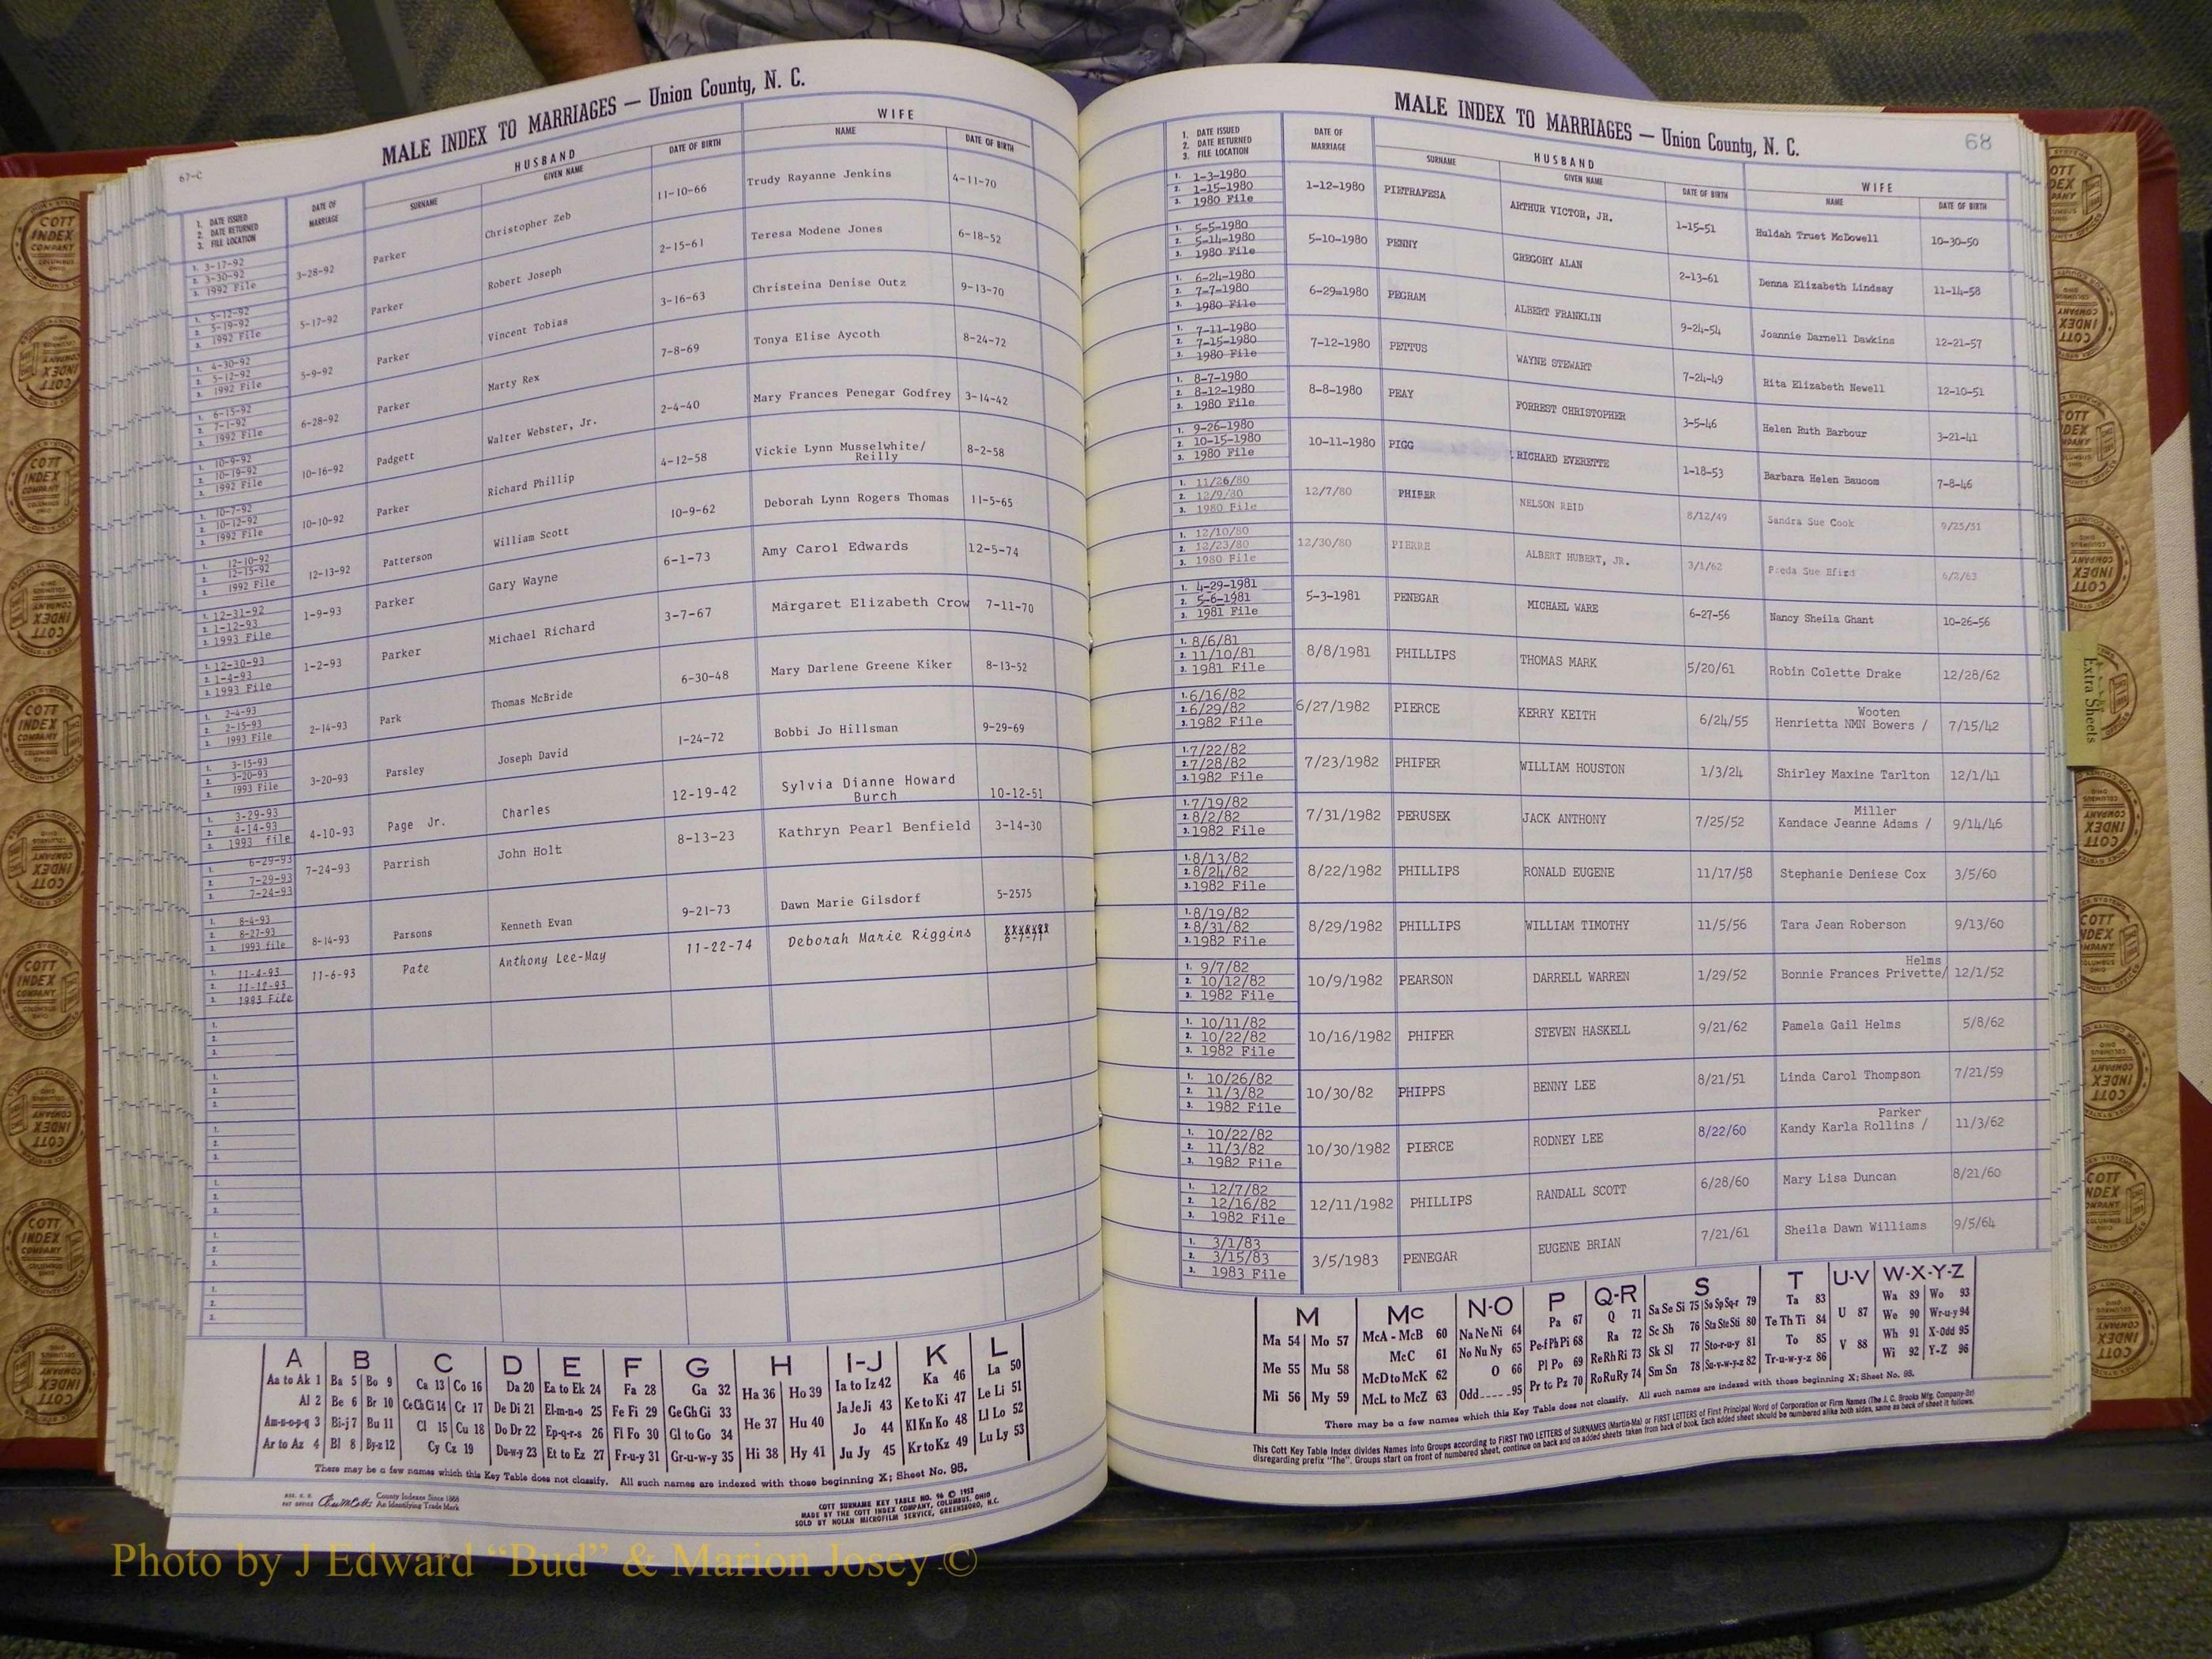 67-C
MALE INDEX TO MARRIAGES — Union County, N. C.
1. DATE ISSUED
2. DATE RETURNED
3. FILE LOCATION
DATE OF MARRIAGE
HUSBAND
SURNAME
GIVEN NAME
DATE OF BIRTH
WIFE
NAME
DATE OF BIRTH
1. 3-17-92
2. 3-30-92
3. 1992 File
3-28-92 Parker Christopher Zeb 11-10-66 Trudy Rayanne Jenkins 4-11-70
1. 5-12-92
2. 5-19-92
3. 1992 File
5-17-92 Parker Robert Joseph 2-15-61 Teresa Modene Jones 6-18-52
1. 4-30-92
2. 5-12-92
3. 1992 File
5-9-92 Parker Vincent Tobias 3-16-63 Christeina Denise Outz 9-13-70
1. 6-15-92
2. 7-1-92
3. 1992 File
6-28-92 Parker Marty Rex 7-8-69 Tonya Elise Aycoth 8-24-72
1. 10-9-92
2. 10-19-92
3. 1992 File
10-16-92 Padgett Walter Webster, Jr. 2-4-40 Mary Frances Penegar Godfrey 3-14-42
1. 10-7-92
2. 10-12-92
3. 1992 File
10-10-92 Parker Richard Phillip 4-12-58 Vickie Lynn Musselwhite/
Reilly 8-2-58
1. 12-10-92
2. 12-15-92
3. 1992 File
12-13-92 Patterson William Scott 10-9-62 Deborah Lynn Rogers Thomas 11-5-65
1. 12-31-92
2. 1-12-93
3. 1993 File
1-9-93 Parker Gary Wayne 6-1-73 Amy Carol Edwards 12-5-74
1. 12-30-93
2. 1-4-93
3. 1993 File
1-2-93 Parker Michael Richard 3-7-67 Margaret Elizabeth Crow 7-11-70
1. 2-4-93
2. 2-15-93
3. 1993 File
2-14-93 Park Thomas McBride 6-30-48 Mary Darlene Greene Kiker 8-13-52
1. 3-15-93
2. 3-20-93
3. 1993 File
3-20-93 Parsley Joseph David 1-24-72 Bobbi Jo Hillsman 9-29-69
1. 3-29-93
2. 4-14-93
3. 1993 file
4-10-93 Page Jr. Charles 12-19-42 Sylvia Dianne Howard
Burch 10-12-51
1. 6-29-93
2. 7-29-93
3. 7-24-93
7-24-93 Parrish John Holt 8-13-23 Kathryn Pearl Benfield 3-14-30
1. 8-4-93
2. 8-27-93
3. 1993 file
8-14-93 Parsons Kenneth Evan 9-21-73 Dawn Marie Gilsdorf 5-2575
1. 11-4-93
2. 11-12-93
3. 1993 File
11-6-93 Pate Anthony Lee-May 11-22-74 Deborah Marie Riggins 6-7-71
1.
2.
3.
1.
2.
3.
1.
2.
3.
1.
2.
3.
1.
2.
3.
1.
2.
3.
A B C D E F G H I-J K L
Aa to Ak 1 Ba 5 Bo 9 Ca 13 Co 16 Da 20 Ea to Ek 24 Fa 28 Ga 32 Ha 36 Ho 39 Ia to Iz 42 Ka 46 La 50
Al 2 Be 6 Br 10 Ce Ch Ci 14 Cr 17 De Di 21 El-m-n-o 25 Fe Fi 29 Ge Gh Gi 33 He 37 Hu 40 Ja Je Ji 43 Ke to Ki 47 Le Li 51
Am-n-o-p-q 3 Bi-j 7 Bu 11 Cl 15 Cu 18 Do Dr 22 Ep-q-r-s 26 Fl Fo 30 Gl to Go 34 Hi 38 Hy 41 Jo 44 Kl Kn Ko 48 Ll Lo 52
Ar to Az 4 Bl 8 By-z 12 Cy Cz 19 Du-w-y 23 Et to Ez 27 Fr-u-y 31 Gr-u-w-y 35 Ju Jy 45 Kr to Kz 49 Lu Ly 53
There may be a few names which this Key Table does not classify. All such names are indexed with those beginning X; Sheet No. 95.
County Indexes Since 1888
An Identifying Trade Mark
COTT SURNAME KEY TABLE NO. 96 © 1952
MADE BY THE COTT INDEX COMPANY, COLUMBUS, OHIO
SOLD BY NOLAN MICROFILM SERVICE, GREENSBORO, N.C.
68
MALE INDEX TO MARRIAGES — Union County, N. C.
1. DATE ISSUED
2. DATE RETURNED
3. FILE LOCATION
DATE OF MARRIAGE
HUSBAND
SURNAME
GIVEN NAME
DATE OF BIRTH
WIFE
NAME
DATE OF BIRTH
1. 1-3-1980
2. 1-15-1980
3. 1980 File
1-12-1980 PIETRAFESA ARTHUR VICTOR, JR. 1-15-51 Huldah Truet McDowell 10-30-50
1. 5-5-1980
2. 5-14-1980
3. 1980 File
5-10-1980 PENNY GREGORY ALAN 2-13-61 Denna Elizabeth Lindsay 11-14-58
1. 6-24-1980
2. 7-7-1980
3. 1980 File
6-29=1980 PEGRAM ALBERT FRANKLIN 9-24-54 Joannie Darnell Dawkins 12-21-57
1. 7-11-1980
2. 7-15-1980
3. 1980 File
7-12-1980 PETTUS WAYNE STEWART 7-24-49 Rita Elizabeth Newell 12-10-51
1. 8-7-1980
2. 8-12-1980
3. 1980 File
8-8-1980 PEAY FORREST CHRISTOPHER 3-5-46 Helen Ruth Barbour 3-21-41
1. 9-26-1980
2. 10-15-1980
3. 1980 File
10-11-1980 PIGG RICHARD EVERETTE 1-18-53 Barbara Helen Baucom 7-8-46
1. 11/26/80
2. 12/9/80
3. 1980 File
12/7/80 PHIFER NELSON REID 8/12/49 Sandra Sue Cook 9/25/51
1. 12/10/80
2. 12/23/80
3. 1980 File
12/30/80 PIERRE ALBERT HUBERT, JR. 3/1/62 Freda Sue Efird 6/2/63
1. 4-29-1981
2. 5-6-1981
3. 1981 File
5-3-1981 PENEGAR MICHAEL WARE 6-27-56 Nancy Sheila Ghant 10-26-56
1. 8/6/81
2. 11/10/81
3. 1981 File
8/8/1981 PHILLIPS THOMAS MARK 5/20/61 Robin Colette Drake 12/28/62
1. 6/16/82
2. 6/29/82
3. 1982 File
6/27/1982 PIERCE KERRY KEITH 6/24/55 Wooten
Henrietta NMN Bowers / 7/15/42
1. 7/22/82
2. 7/28/82
3. 1982 File
7/23/1982 PHIFER WILLIAM HOUSTON 1/3/24 Shirley Maxine Tarlton 12/1/41
1. 7/19/82
2. 8/2/82
3. 1982 File
7/31/1982 PERUSEK JACK ANTHONY 7/25/52 Miller
Kandace Jeanne Adams / 9/14/46
1. 8/13/82
2. 8/24/82
3. 1982 File
8/22/1982 PHILLIPS RONALD EUGENE 11/17/58 Stephanie Deniese Cox 3/5/60
1. 8/19/82
2. 8/31/82
3. 1982 File
8/29/1982 PHILLIPS WILLIAM TIMOTHY 11/5/56 Tara Jean Roberson 9/13/60
1. 9/7/82
2. 10/12/82
3. 1982 File
10/9/1982 PEARSON DARRELL WARREN 1/29/52 Helms
Bonnie Frances Privette/ 12/1/52
1. 10/11/82
2. 10/22/82
3. 1982 File
10/16/1982 PHIFER STEVEN HASKELL 9/21/62 Pamela Gail Helms 5/8/62
1. 10/26/82
2. 11/3/82
3. 1982 File
10/30/82 PHIPPS BENNY LEE 8/21/51 Linda Carol Thompson 7/21/59
1. 10/22/82
2. 11/3/82
3. 1982 File
10/30/1982 PIERCE RODNEY LEE 8/22/60 Parker
Kandy Karla Rollins / 11/3/62
1. 12/7/82
2. 12/16/82
3. 1982 File
12/11/1982 PHILLIPS RANDALL SCOTT 6/28/60 Mary Lisa Duncan 8/21/60
1. 3/1/83
2. 3/15/83
3. 1983 File
3/5/1983 PENEGAR EUGENE BRIAN 7/21/61 Sheila Dawn Williams 9/5/64
M Mc N-O P Q-R S T U-V W-X-Y-Z
Ma 54 Mo 57 McA - McB 60 Na Ne Ni 64 Pa 67 Q 71 Sa Se Si 75 So Sp Sq-r 79 Ta 83 U 87 Wa 89 Wo 93
Me 55 Mu 58 McC 61 No Nu Ny 65 Pe-f Ph Pi 68 Ra 72 Sc Sh 76 Sta Ste Sti 80 Te Th Ti 84 V 88 We 90 Wr-u-y 94
Mi 56 My 59 McD to McK 62 O 66 Pl Po 69 Re Rh Ri 73 Sk Sl 77 Sto-r-u-y 81 To 85 Wh 91 X-Odd 95
McL to McZ 63 Odd 95 Pr to Pz 70 Ro Ru Ry 74 Sm Sn 78 Su-v-w-y-z 82 Tr-u-w-y-z 86 Wi 92 Y-Z 96
There may be a few names which this Key Table does not classify. All such names are indexed with those beginning X; Sheet No. 95.
This Cott Key Table Index divides Names into Groups according to FIRST TWO LETTERS of SURNAMES (Martin-Ma) or FIRST LETTERS of First Principal Word of Corporation or Firm Names (The J. C. Brooks Mfg. Company-Br)
disregarding prefix "The". Groups start on front of numbered sheet, continue on back and on added sheets taken from back of book. Each added sheet should be numbered alike both sides, same as back of sheet it follows.
Extra Sheets
COTT INDEX COMPANY
COLUMBUS OHIO
Photo by J Edward “Bud” & Marion Josey ©